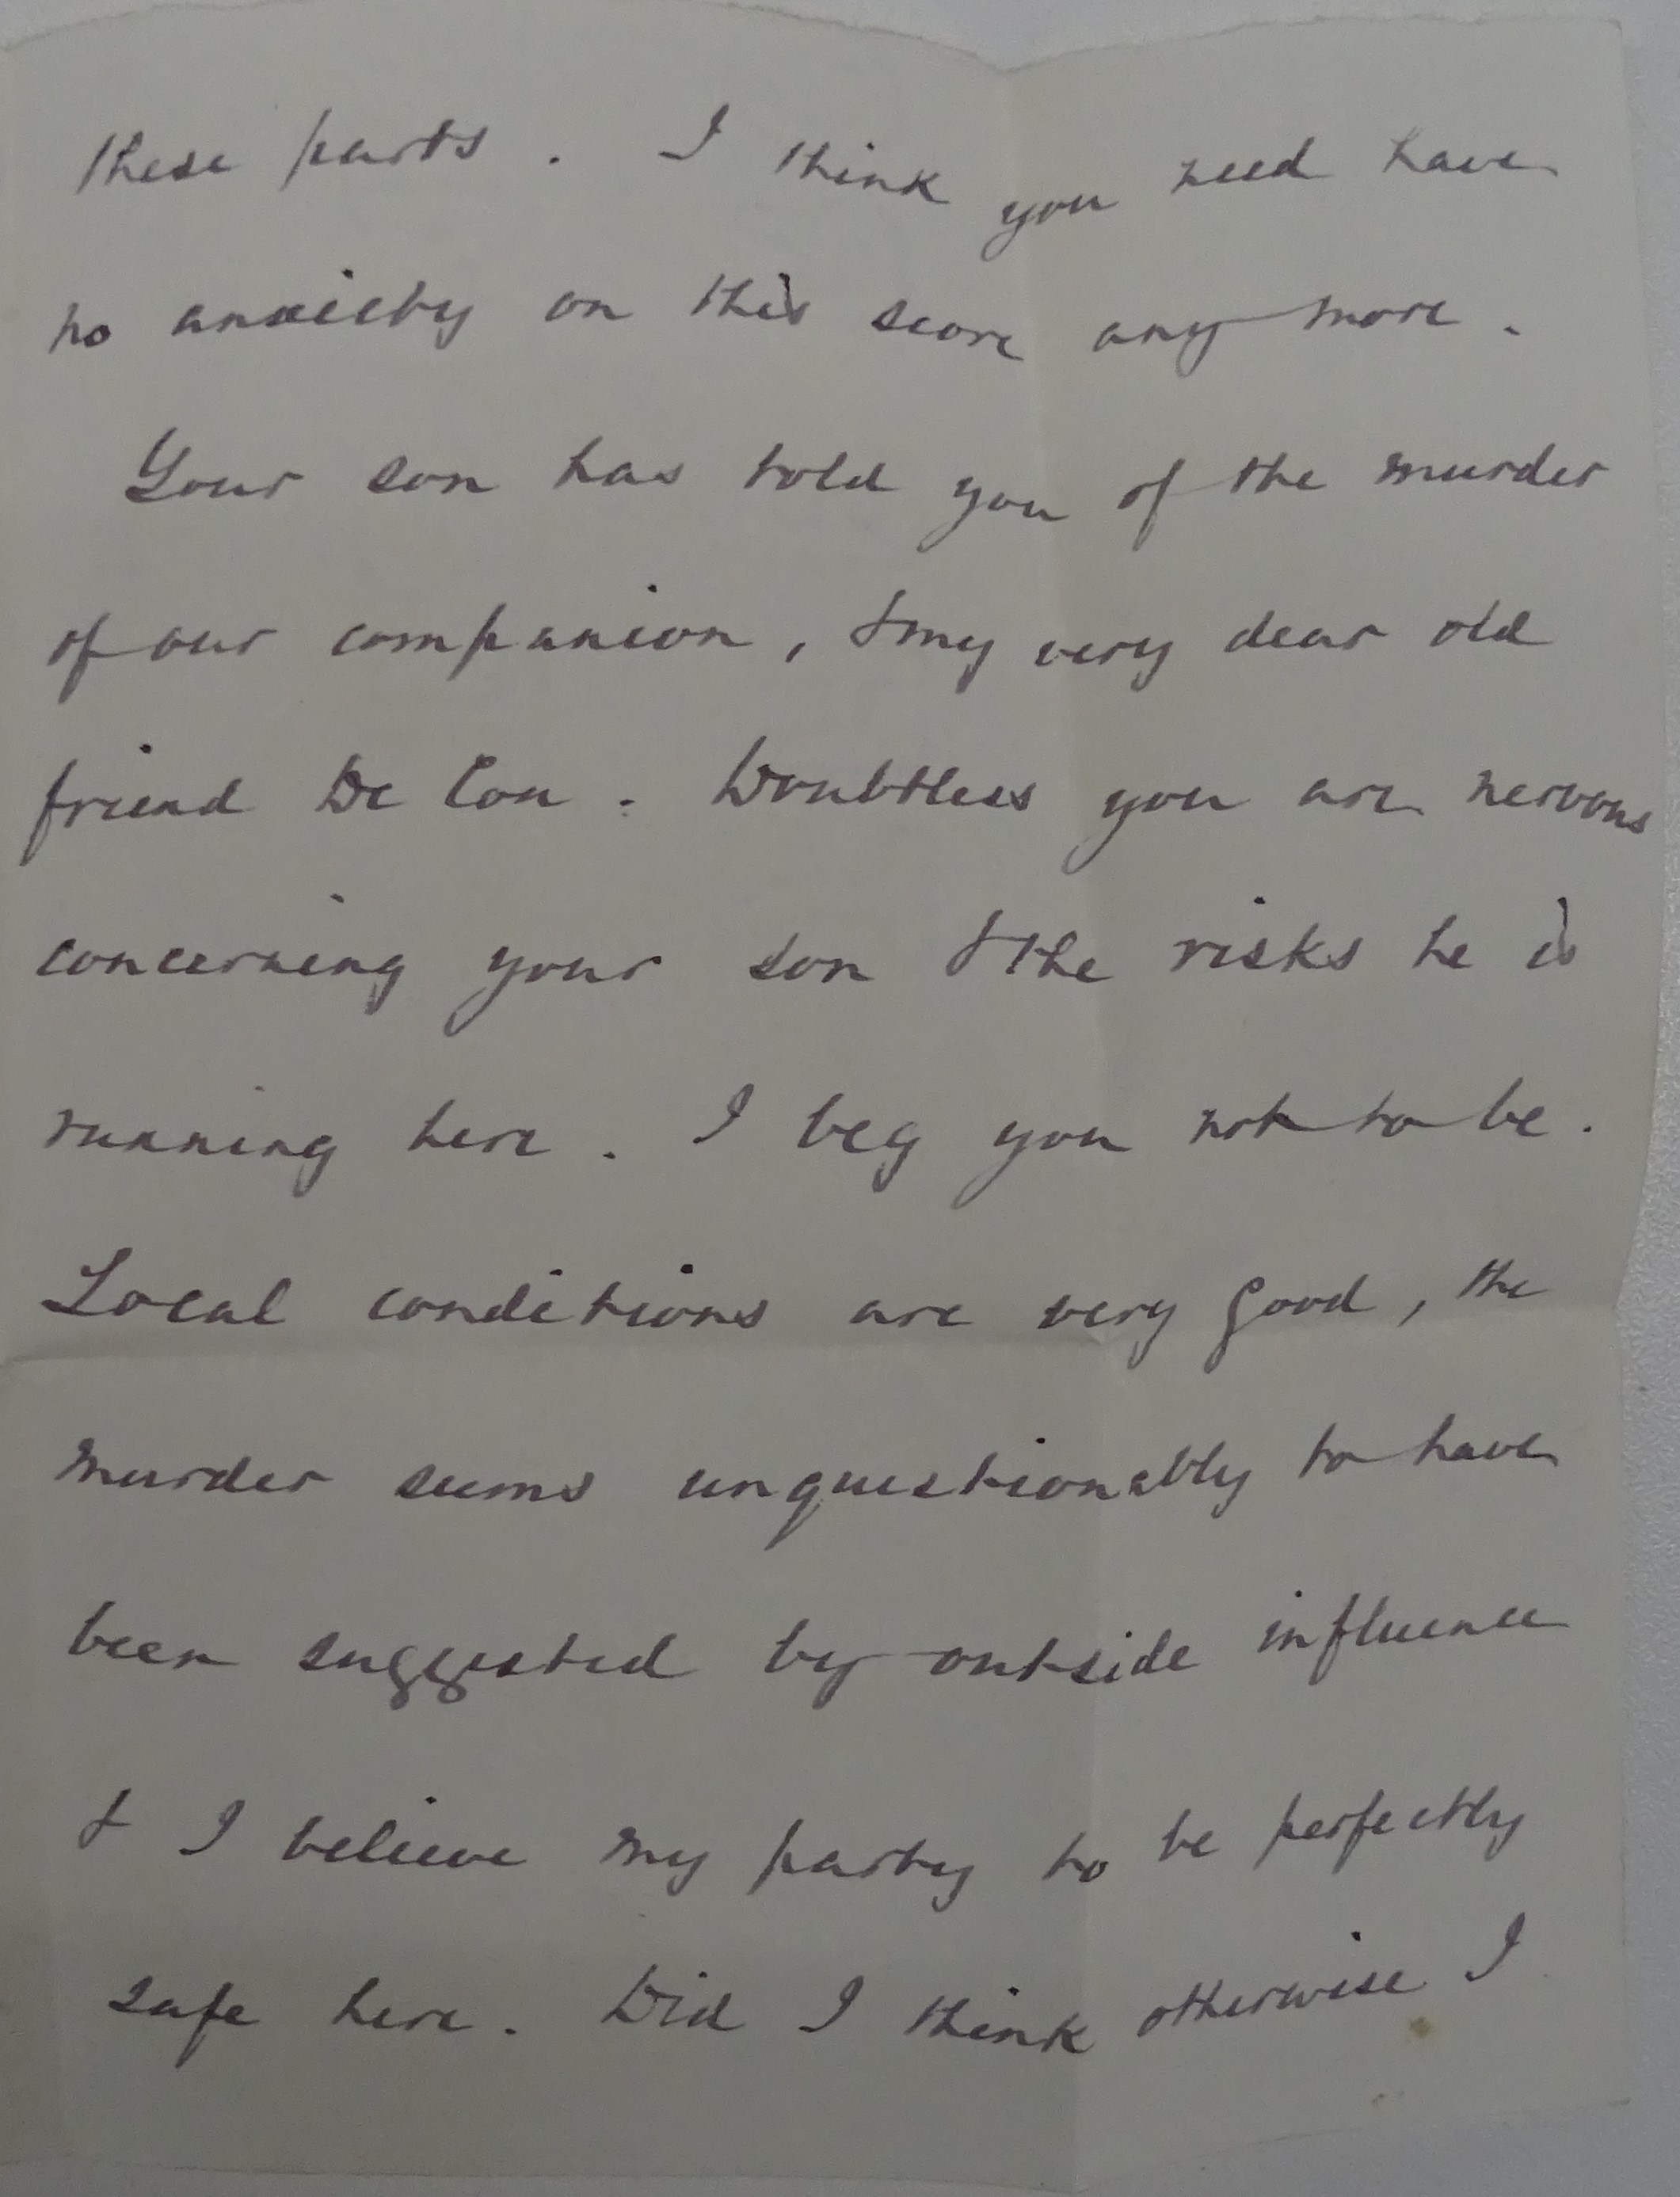 these parts. I think you need have
no anxiety on this score any more.
Your son has told you of the murder
of our companion, & my very dear old
friend De Cou. Doubtless you are nervous
concerning your son & the risks he is
running here. I beg you not to be.
Local conditions are very good, the
murder seems unquestionably to have
been suggested by outside influence
& I believe my party to be perfectly
safe here. Did I think otherwise I